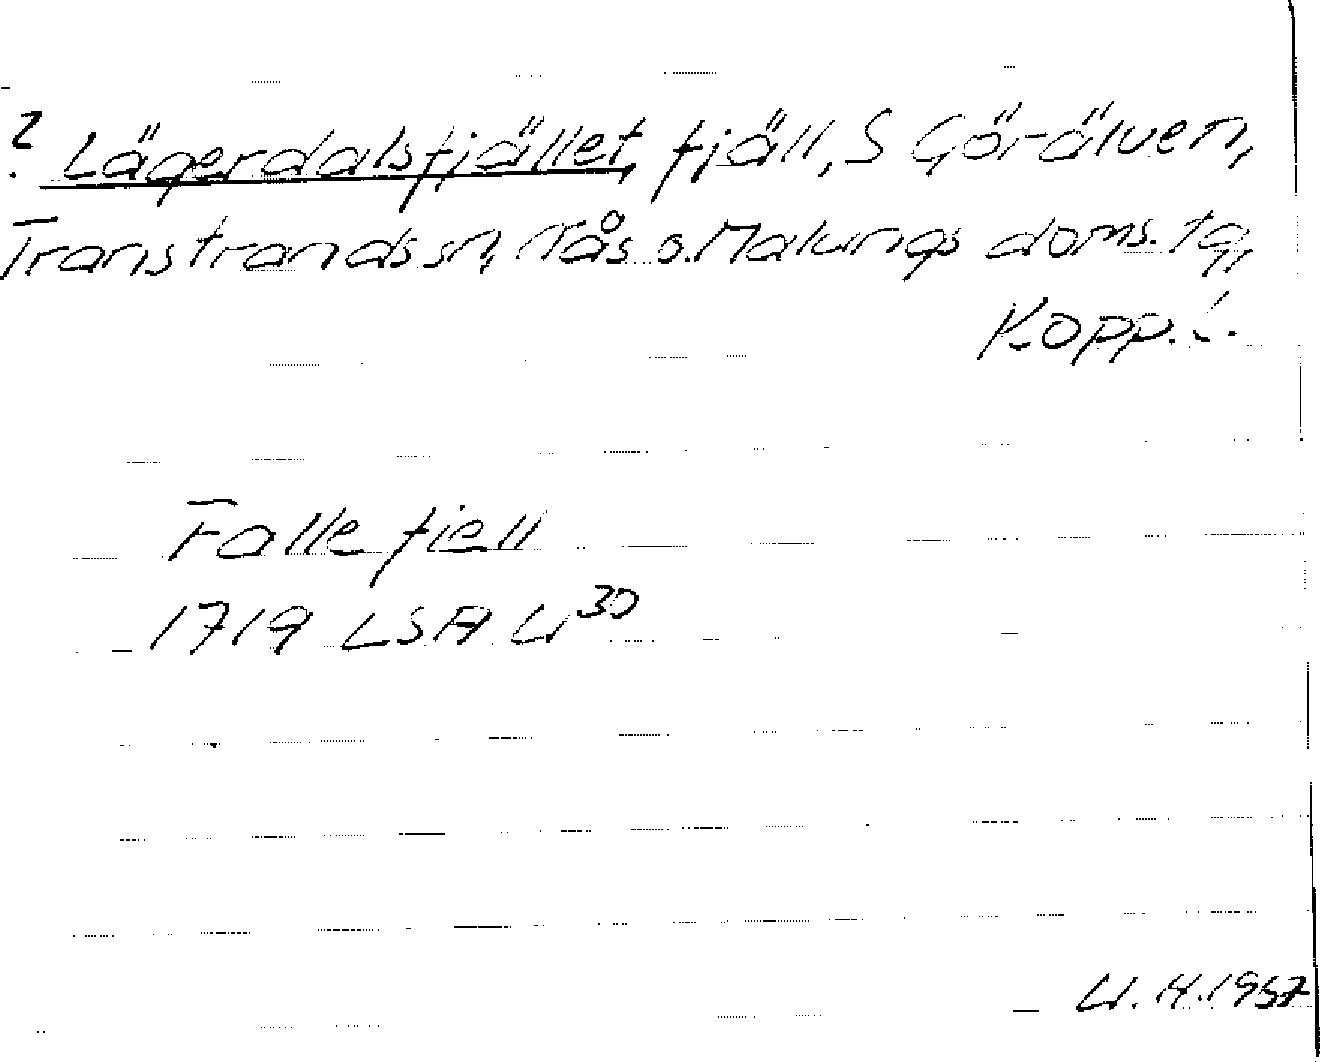 ? Lägerdalsfjället, fjäll, S Görälven,
Transtrands sn, Nås o. Malungs doms. tg,
Kopp. l.
Falle fiell
1719 LSA W30
W. H. 1957